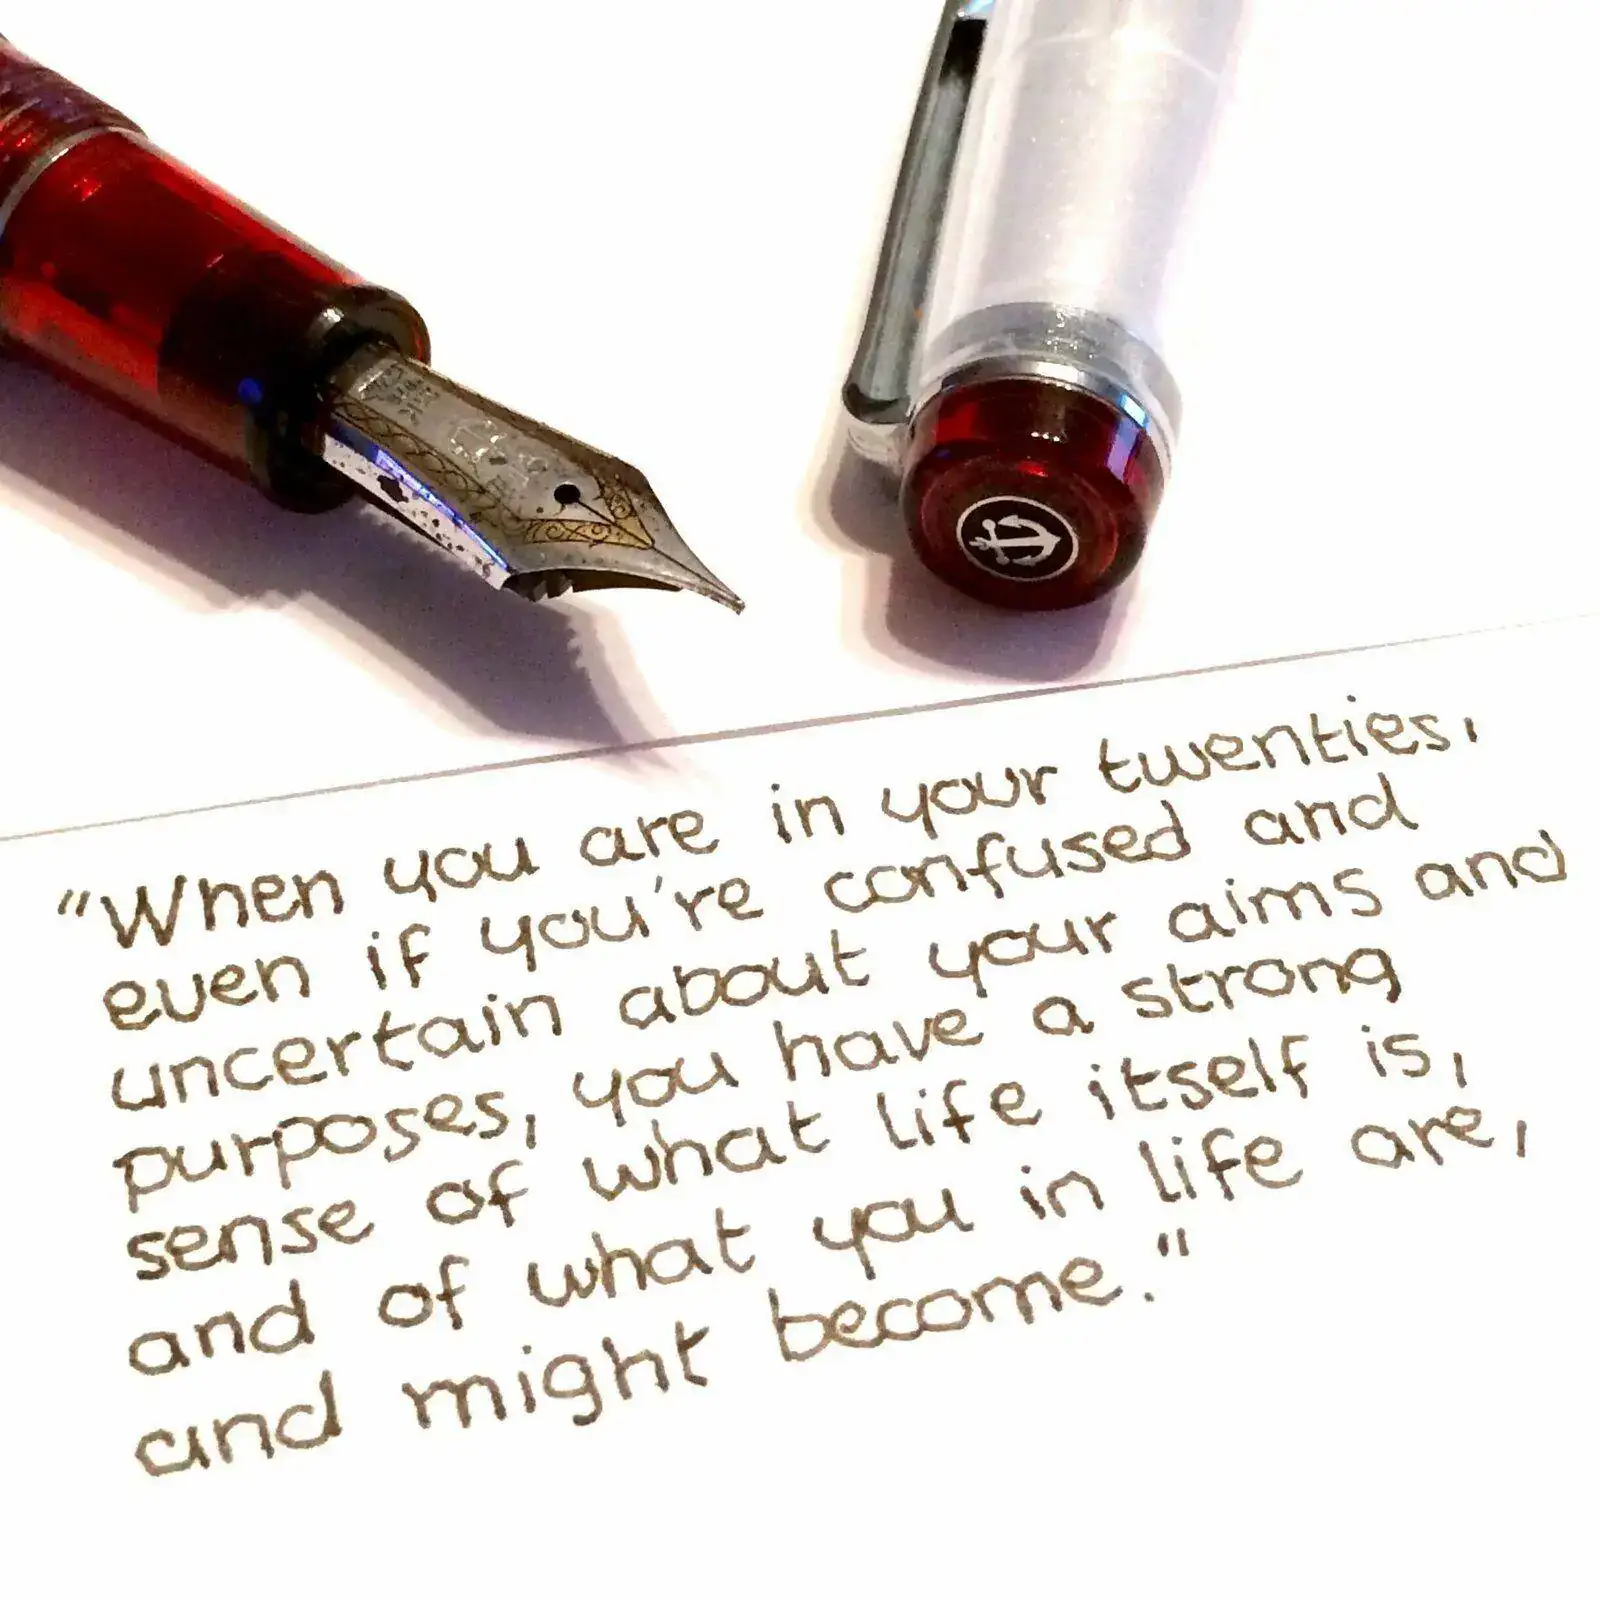 "When you are in your twenties,
even if you're confused and
uncertain about your aims and
purposes, you have a strong
sense of what life itself is,
and of what you in life are,
and might become."